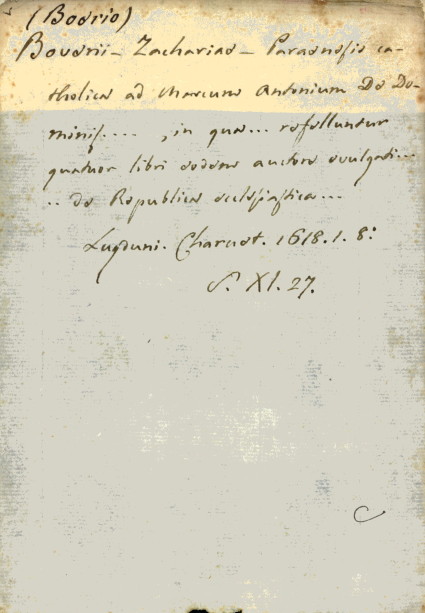 (Bovrio)
Boverii - Zacharias - Paraenesis ca-
tholica ad Marcum Antonium De Do-
minis.... , in qua... refelluntur
quatuor libri eodem auctore evulgati...
.. de Republica ecclesiastica...
Lugduni. Charuot. 1618. 1. 8:
S. XI. 27.
C